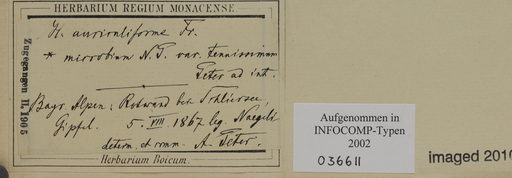 HERBARIUM REGIUM MONACENSE.
H. auriculiforme Fr.
* microbium N. P. var. tenuissimum
Peter ad int.
Bayr. Alpen: Rotwand bei Schliersee,
Gipfel. 5. VIII 1867 leg. Naegeli
determ. et comm. A. Peter.
Herbarium Boicum.
Zugegangen II, 1905
Aufgenommen in
INFOCOMP-Typen
2002
036611
imaged 2010